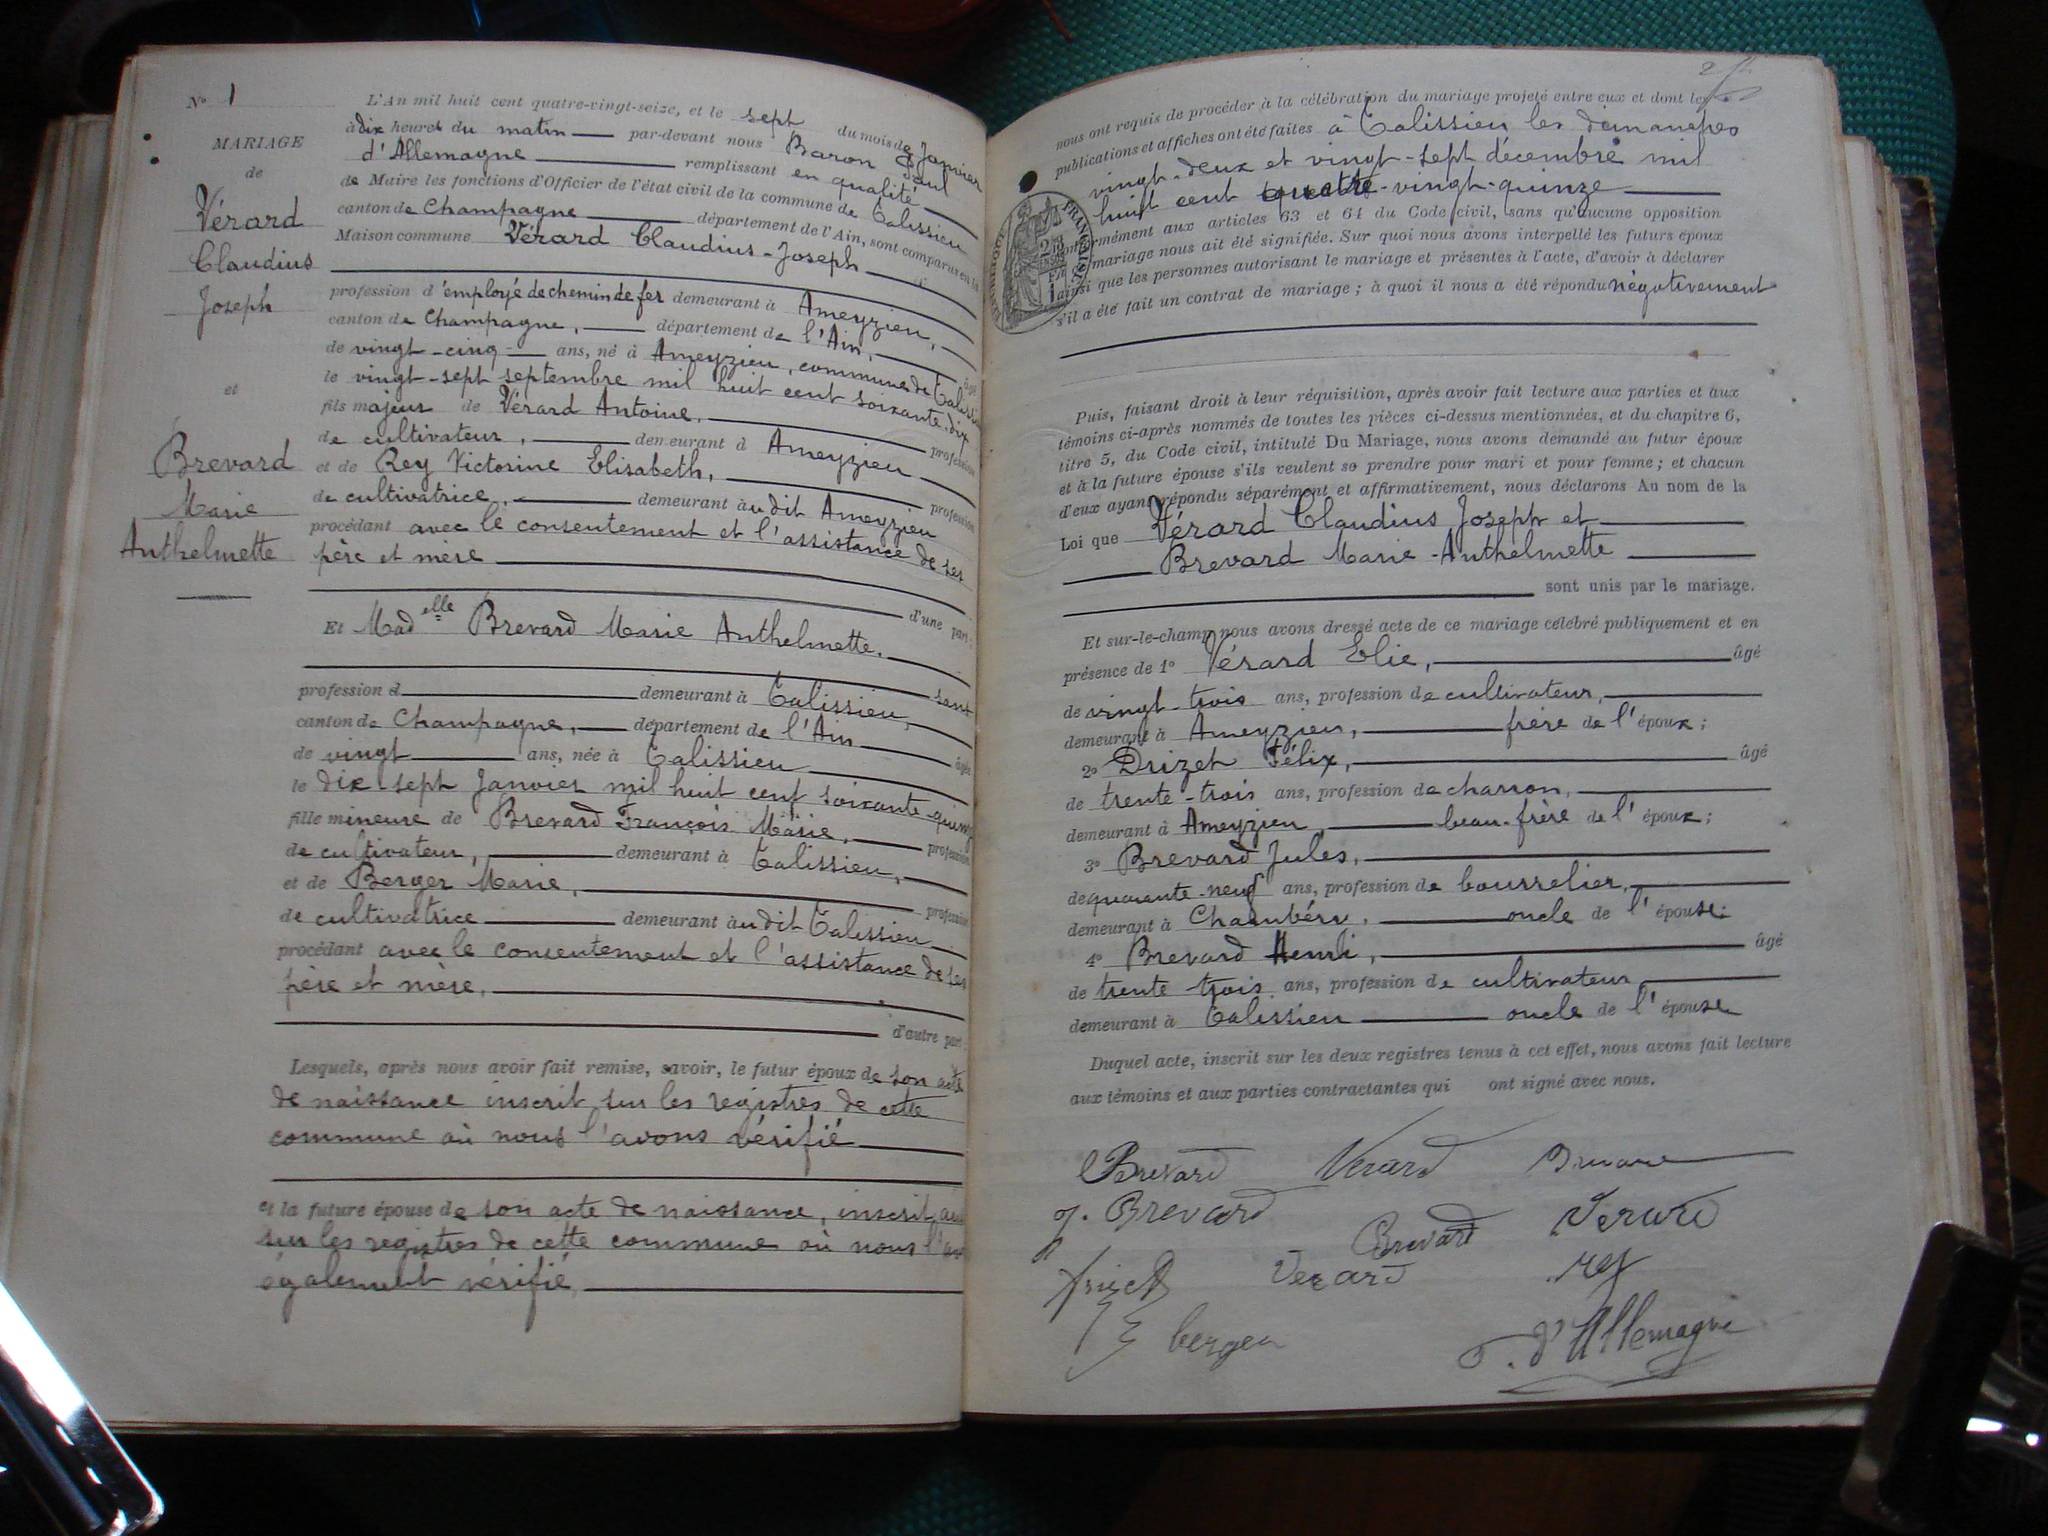 N° 1
MARIAGE
de
Vérard
Claudius
Joseph
et
Brevard
Marie
Anthelmette
L'An mil huit cent quatre-vingt-seize, et le sept du mois de Janvier
à dix heures du matin par-devant nous Baron Paul
d'Allemagne remplissant en qualité
de Maire les fonctions d'Officier de l'état civil de la commune de Talissieu
canton de Champagne département de l'Ain, sont comparus en la
Maison commune Vérard Claudius-Joseph
profession d'employé de chemin de fer demeurant à Ameyzieu,
canton de Champagne, département de l'Ain, âgé
de vingt-cinq ans, né à Ameyzieu, commune de Talissieu
le vingt-sept septembre mil huit cent soixante-dix
fils majeur de Vérard Antoine, profession
de cultivateur, demeurant à Ameyzieu
et de Rey Victorine Elisabeth, profession
de cultivatrice, demeurant audit Ameyzieu
procédant avec le consentement et l'assistance de ses
père et mère
d'une part:
Et Mad elle Brevard Marie Anthelmette.
profession d sans
demeurant à Talissieu,
canton de Champagne, département de l'Ain âgée
de vingt ans, née à Talissieu
le dix-sept Janvier mil huit cent soixante-quinze
fille mineure de Brevard François Marie, profession
de cultivateur, demeurant à Talissieu,
et de Berger Marie, profession
de cultivatrice demeurant audit Talissieu
procédant avec le consentement et l'assistance de ses
père et mère,
d'autre part:
Lesquels, après nous avoir fait remise, savoir, le futur époux de son acte
de naissance inscrit sur les registres de cette
commune où nous l'avons vérifié
et la future épouse de son acte de naissance, inscrit
sur les registres de cette commune où nous
également vérifié
nous ont requis de procéder à la célébration du mariage projeté entre eux et dont les
publications et affiches ont été faites à Talissieu les dimanches
vingt-deux et vingt-sept décembre mil
huit cent quatre-vingt-quinze
conformément aux articles 63 et 64 du Code civil, sans qu'aucune opposition
mariage nous ait été signifiée. Sur quoi nous avons interpellé les futurs époux
ainsi que les personnes autorisant le mariage et présentes à l'acte, d'avoir à déclarer
s'il a été fait un contrat de mariage; à quoi il nous a été répondu négativement
Puis, faisant droit à leur réquisition, après avoir fait lecture aux parties et aux
témoins ci-après nommés de toutes les pièces ci-dessus mentionnées, et du chapitre 6,
titre 5, du Code civil, intitulé Du Mariage, nous avons demandé au futur époux
et à la future épouse s'ils veulent se prendre pour mari et pour femme; et chacun
d'eux ayant répondu séparément et affirmativement, nous déclarons Au nom de la
Loi que Vérard Claudius Joseph et
Brevard Marie-Anthelmette
sont unis par le mariage.
Et sur-le-champ nous avons dressé acte de ce mariage célébré publiquement et en
présence de 1° Vérard Elie, âgé
de vingt-trois ans, profession de cultivateur,
demeurant à Ameyzieu, frère de l'époux;
2° Drizet Félix, âgé
de trente-trois ans, profession de charron,
demeurant à Ameyzieu, beau-frère de l'époux;
3° Brevard Jules,
de quarante-neuf ans, profession de bourrelier,
demeurant à Chambéry, oncle de l'épouse:
4° Brevard Henri, âgé
de trente trois ans, profession de cultivateur
demeurant à Talissieu oncle de l'épouse
Duquel acte, inscrit sur les deux registres tenus à cet effet, nous avons fait lecture
aux témoins et aux parties contractantes qui ont signé avec nous.
Brevard Verard
J. Brevard Brevard Verard
Verard rey
berger d'Allemagne